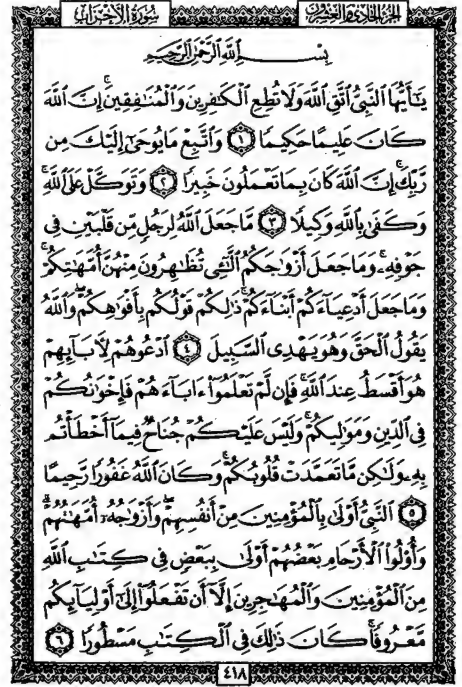 سُورَةُ الأَحْزَابِ
الجزء الحادي والعشرون
بِسْمِ ٱللَّهِ ٱلرَّحْمَٰنِ ٱلرَّحِيمِ
يَـٰٓأَيُّهَا ٱلنَّبِىُّ ٱتَّقِ ٱللَّهَ وَلَا تُطِعِ ٱلْكَـٰفِرِينَ وَٱلْمُنَـٰفِقِينَ ۗ إِنَّ ٱللَّهَ
كَانَ عَلِيمًا حَكِيمًا ١ وَٱتَّبِعْ مَا يُوحَىٰٓ إِلَيْكَ مِن
رَّبِّكَ ۚ إِنَّ ٱللَّهَ كَانَ بِمَا تَعْمَلُونَ خَبِيرًا ٢ وَتَوَكَّلْ عَلَى ٱللَّهِ ۚ
وَكَفَىٰ بِٱللَّهِ وَكِيلًا ٣ مَّا جَعَلَ ٱللَّهُ لِرَجُلٍ مِّن قَلْبَيْنِ فِى
جَوْفِهِۦ ۚ وَمَا جَعَلَ أَزْوَٰجَكُمُ ٱلَّـٰٓـِٔى تُظَـٰهِرُونَ مِنْهُنَّ أُمَّهَـٰتِكُمْ ۚ
وَمَا جَعَلَ أَدْعِيَآءَكُمْ أَبْنَآءَكُمْ ۚ ذَٰلِكُمْ قَوْلُكُم بِأَفْوَٰهِكُمْ ۖ وَٱللَّهُ
يَقُولُ ٱلْحَقَّ وَهُوَ يَهْدِى ٱلسَّبِيلَ ٤ ٱدْعُوهُمْ لِـَٔابَآئِهِمْ
هُوَ أَقْسَطُ عِندَ ٱللَّهِ ۚ فَإِن لَّمْ تَعْلَمُوٓا۟ ءَابَآءَهُمْ فَإِخْوَٰنُكُمْ
فِى ٱلدِّينِ وَمَوَٰلِيكُمْ ۚ وَلَيْسَ عَلَيْكُمْ جُنَاحٌ فِيمَآ أَخْطَأْتُم
بِهِۦ وَلَـٰكِن مَّا تَعَمَّدَتْ قُلُوبُكُمْ ۚ وَكَانَ ٱللَّهُ غَفُورًا رَّحِيمًا
٥ ٱلنَّبِىُّ أَوْلَىٰ بِٱلْمُؤْمِنِينَ مِنْ أَنفُسِهِمْ ۖ وَأَزْوَٰجُهُۥٓ أُمَّهَـٰتُهُمْ ۗ
وَأُو۟لُوا۟ ٱلْأَرْحَامِ بَعْضُهُمْ أَوْلَىٰ بِبَعْضٍ فِى كِتَـٰبِ ٱللَّهِ
مِنَ ٱلْمُؤْمِنِينَ وَٱلْمُهَـٰجِرِينَ إِلَّآ أَن تَفْعَلُوٓا۟ إِلَىٰٓ أَوْلِيَآئِكُم
مَّعْرُوفًا ۚ كَانَ ذَٰلِكَ فِى ٱلْكِتَـٰبِ مَسْطُورًا ٦
٤١٨